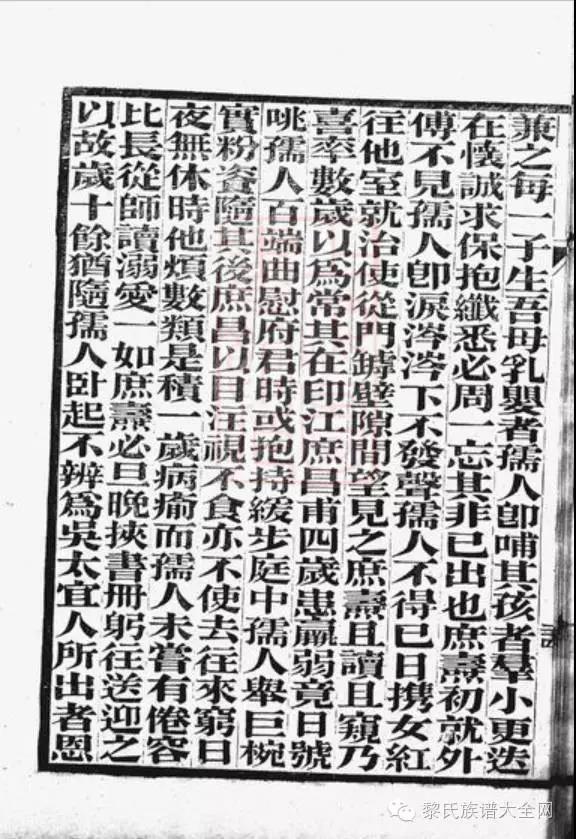 兼之每一子生吾母乳嬰者孺人卽哺其孩者羣小更迭
在懷誠求保抱纖悉必周一忘其非已出也庶燾初就外
傅不見孺人卽淚涔涔下不發聲孺人不得已日携女紅
往他室就治使從門罅壁隙間望見之庶燾且讀且窺乃
喜率數歲以爲常其在印江庶昌甫四歲患羸弱竟日號
咷孺人百端曲慰府君時或抱持緩步庭中孺人舉巨椀
實粉餈隨其後庶昌以目注視不食亦不使去往來窮日
夜無休時他煩數類是積一歲病瘉而孺人未嘗有倦容
比長從師讀溺愛一如庶燾必旦晚挾書冊躬往送迎之
以故歲十餘猶隨孺人臥起不辨爲吳太宜人所出者恩
黎氏族谱大全网